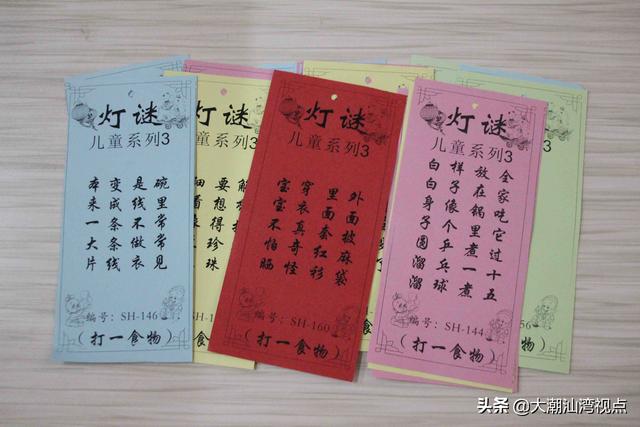 灯谜
儿童系列3
本来一大片
变成条条线
是线不做衣
碗里常常见
编号：SH-146
（打一食物）
灯谜
儿童系列
要想得珍珠
灯谜
儿童系列3
宝宝不怕晒
穿衣真奇怪
里面套红衫
外面披麻袋
编号：SH-160
（打一食物）
灯谜
儿童系列3
白白身子圆溜溜
样子像个乒乓球
放在锅里煮一煮
全家吃它过十五
编号：SH-144
（打一食物）
56
头条 @大潮汕湾视点